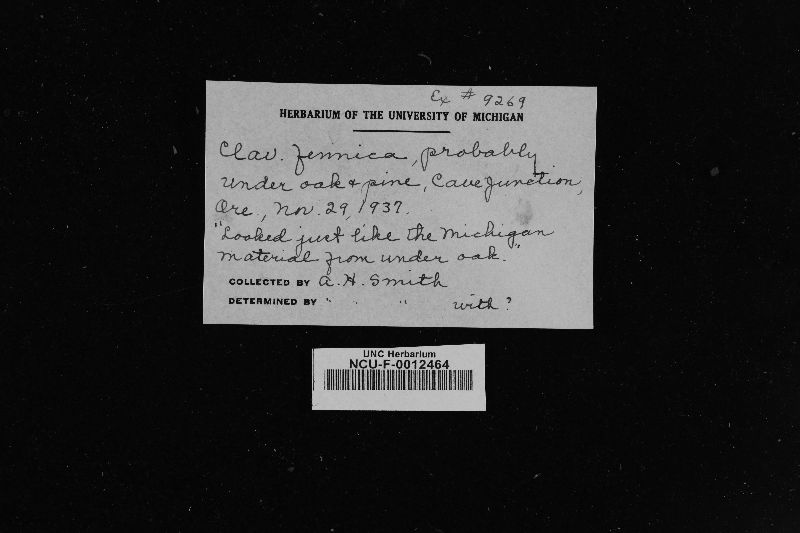 Ex # 9269
HERBARIUM OF THE UNIVERSITY OF MICHIGAN
Clav. fennica, probably
under oak & pine, Cave Junction,
Ore., Nov. 29, 1937.
"Looked just like the Michigan
material from under oak."
COLLECTED BY A. H. Smith
DETERMINED BY " " " with?
UNC Herbarium
NCU-F-0012464